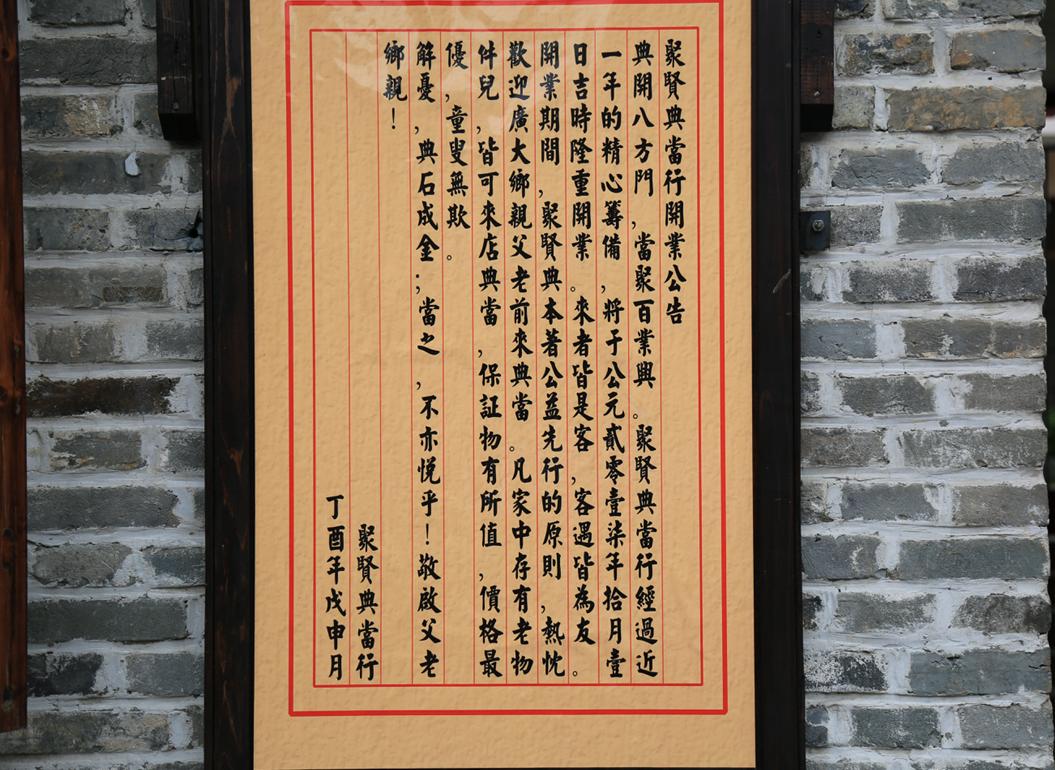 聚賢典當行開業公告
典開八方門,當聚百業興。聚賢典當行經過近
一年的精心籌備,將于公元貳零壹柒年拾月壹
日吉時隆重開業。來者皆是客,客遇皆為友。
開業期間,聚賢典本著公益先行的原則,熱忱
歡迎廣大鄉親父老前來典當。凡家中存有老物
件兒,皆可來店典當,保証物有所值,價格最
優,童叟無欺。
解憂,典石成金;當之,不亦悅乎!敬啟父老
鄉親!
聚賢典當行
丁酉年戊申月